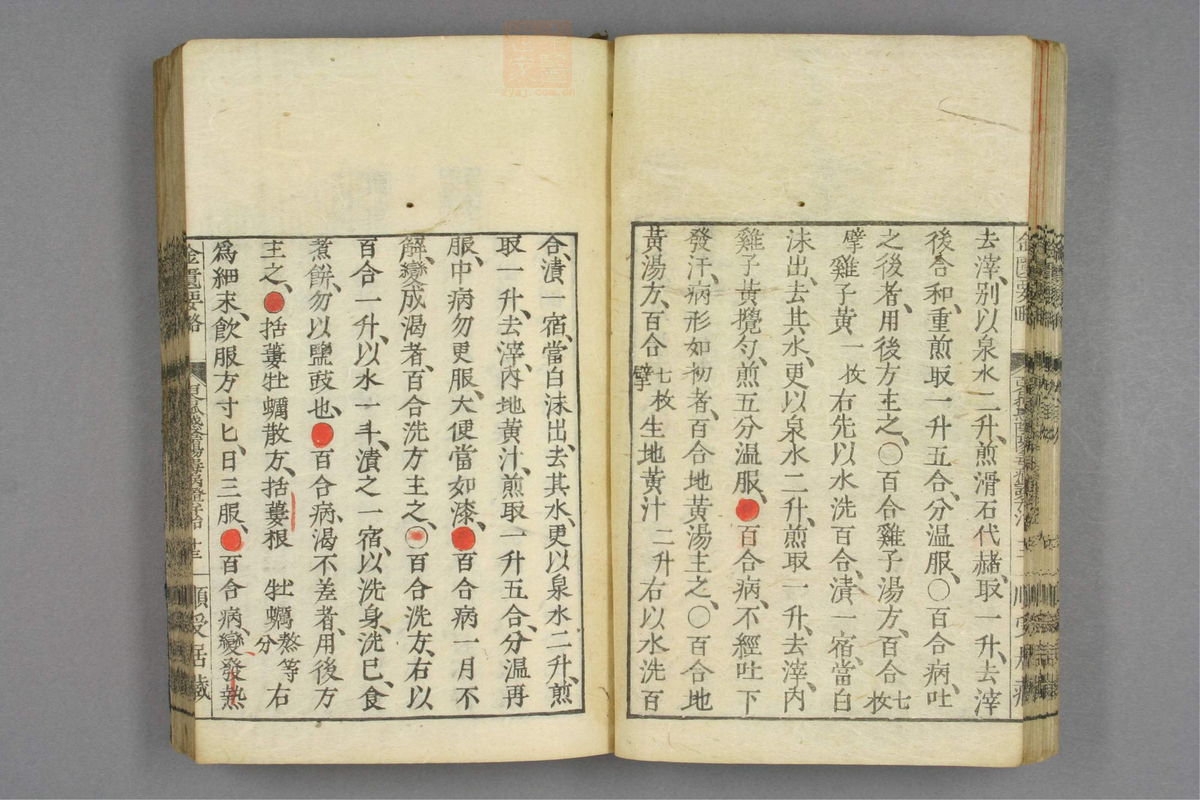 去滓、別以泉水二升、煎滑石代赭、取一升、去滓
後合和、重煎取一升五合、分温服、〇百合病、吐
之後者、用後方主之、〇百合雞子湯方、百合七枚
擘雞子黃一枚右先以水洗百合、漬一宿、當白
沫出、去其水、更以泉水二升、煎取一升、去滓、内
雞子黃攪匀、煎五分温服、百合病、不經吐下
發汗、病形如初者、百合地黃湯主之、〇百合地
黃湯方、百合七枚擘生地黃汁二升右以水洗百
合、漬一宿、當白沫出、去其水、更以泉水二升、煎
取一升、去滓、内地黃汁、煎取一升五合、分温再
服、中病勿更服、大便當如漆、百合病一月不
解、變成渴者、百合洗方主之、〇百合洗方、右以
百合一升、以水一斗、漬之一宿、以洗身、洗已、食
煮餅、勿以鹽豉也、百合病、渴不差者、用後方
主之、括蔞牡蠣散方、括蔞根 牡蠣熬等分右
爲細末、飲服方寸匕、日三服、百合病、變發熱
金匱要略
十三
順受居藏